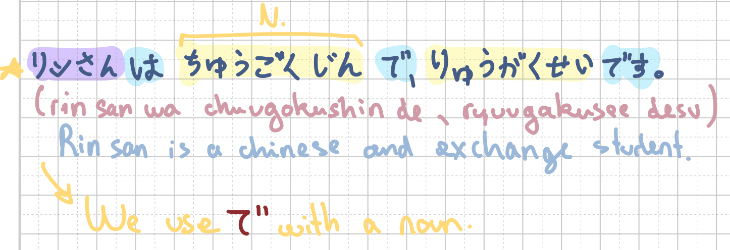 N.
リンさんは ちゅうごくじん で、りゅうがくせいです。
(rin san wa chuugokushin de、ryuugakusee desu)
Rin san is a chinese and exchange student.
We use で with a noun.